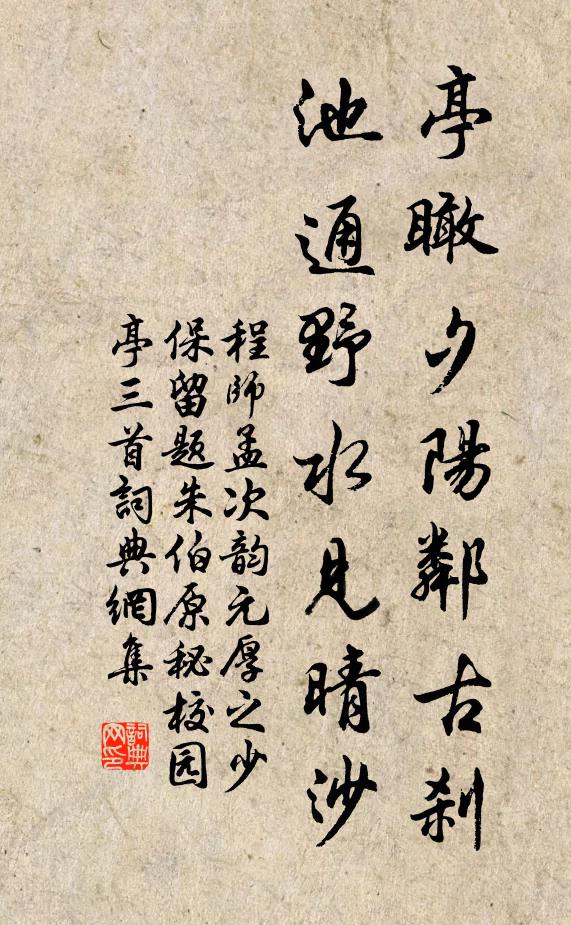 亭瞰夕陽鄰古刹
池通野水見晴沙
程師孟次韵元厚之少
保留題朱伯原秘校园
亭三首詞典網集
詞典
网印